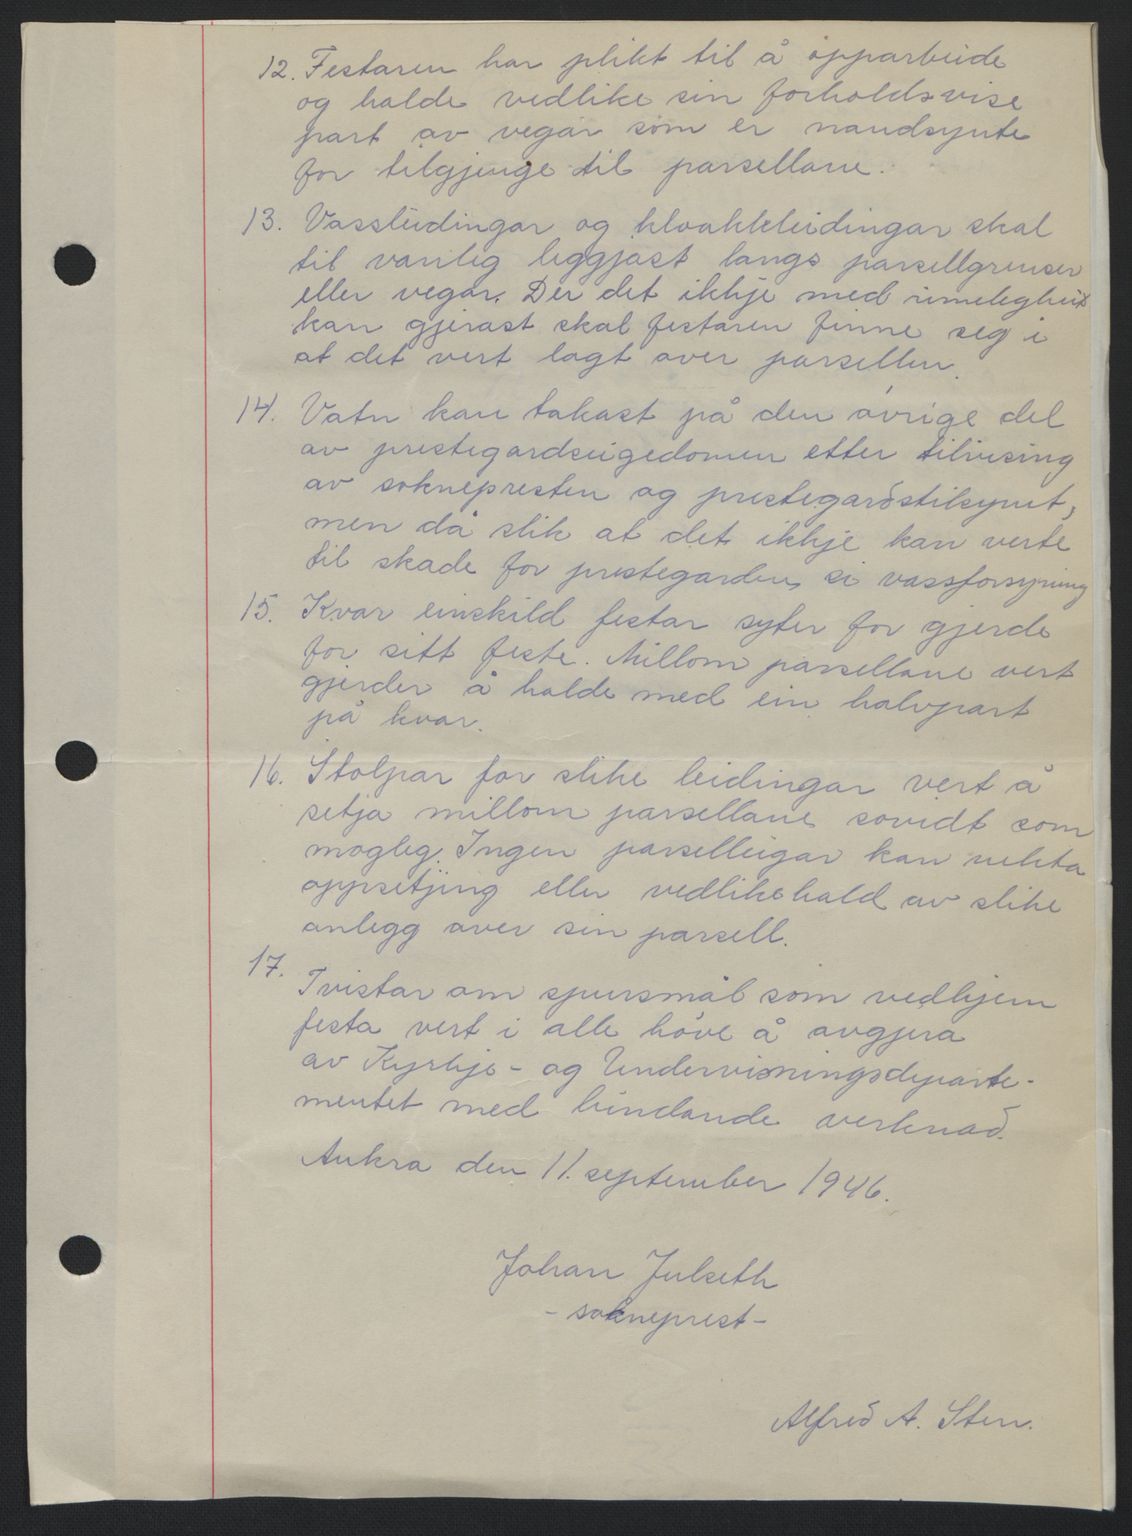 12. Festaren har plikt til å opparbeide
og halde vedlike sin forholdsvise
part av vegar som er naudsynte
for tilgjenge til parsellane.
13. Vassleidingar og kloakkleidingar skal
til vanleg leggjast langs parsellgrenser
eller vegar. Der det ikkje med rimelegheit
kan gjerast skal festaren finne seg i
at det vert lagt over parsellen.
14. Vatn kan takast på den øvrige del
av prestegardseigedomen etter tilvising
av soknepresten og prestegardstilsynet,
men då slik at det ikkje kan verte
til skade for prestegarden si vassforsyning
15. Kvar einskild festar syter for gjerde
for sitt feste. Millom parsellane vert
gjerder å halde med ein halvpart
på kvar.
16. Stolpar for slike leidingar vert å
setja millom parsellane sovidt som
mogleg. Ingen parselleigar kan nekta
oppsetjing eller vedlikehald av slike
anlegg over sin parsell.
17.
Tvistar om spursmål som vedkjem
festa vert i alle høve å avgjera
av Kyrkje- og Undervisningsdeparte-
mentet med bindande verknad.
Aukra den 11. september 1946.
Johan Julseth
- sokneprest -
Alfred A. Sten.